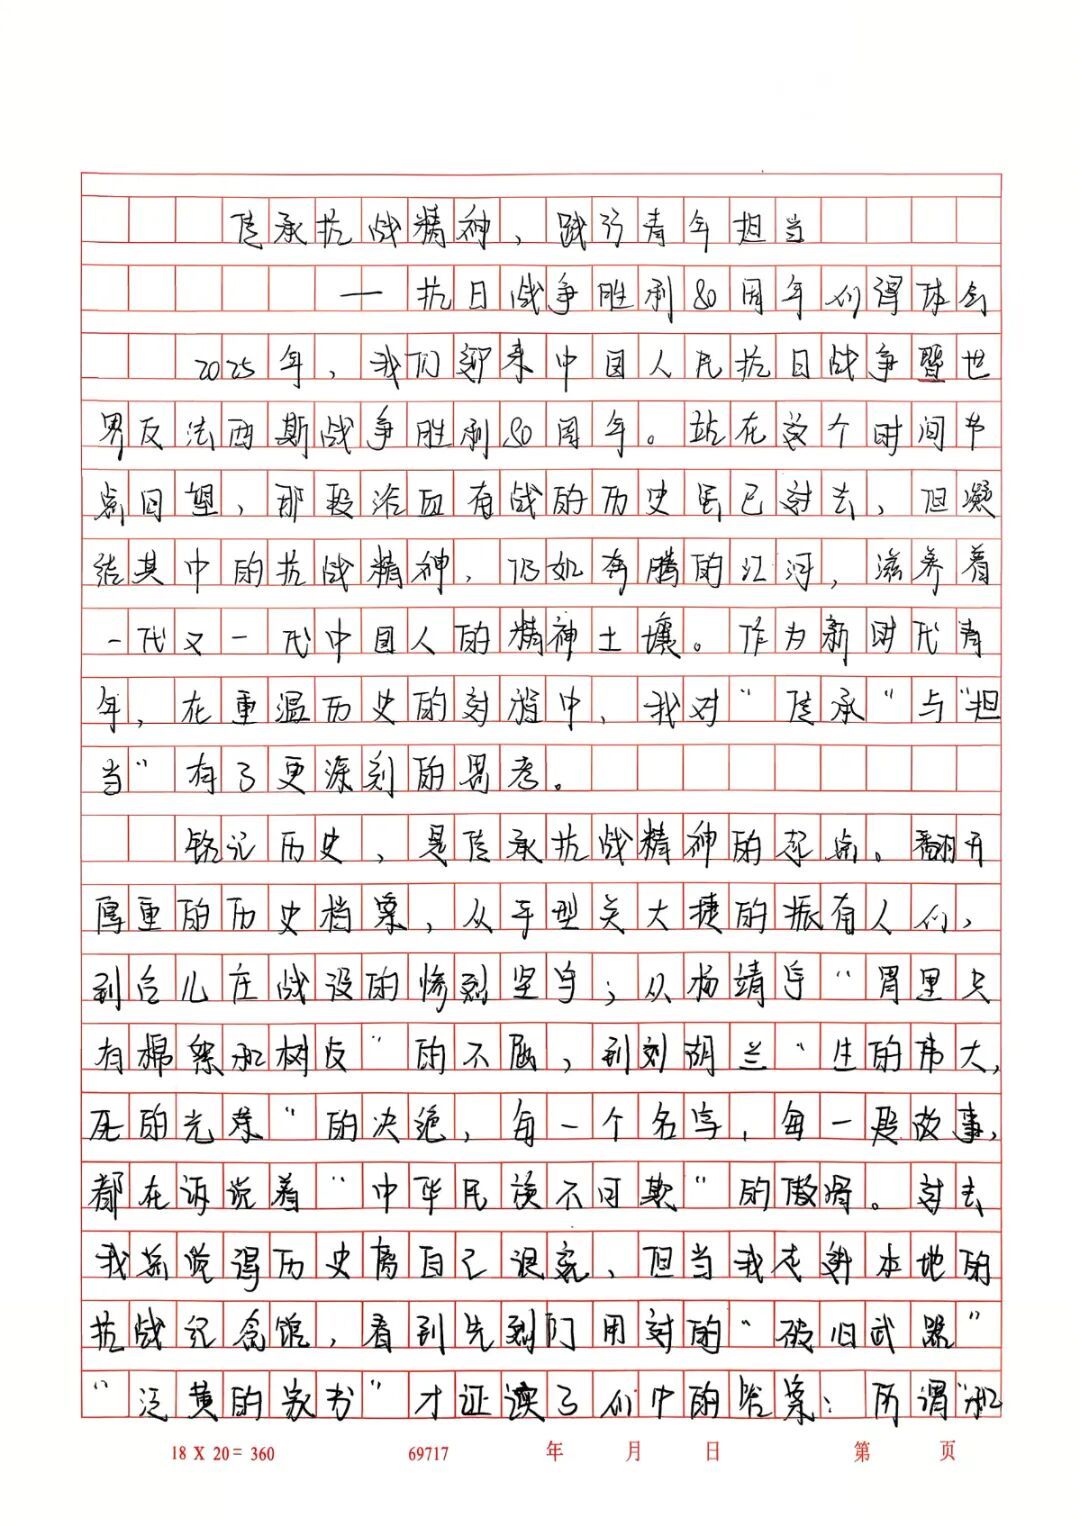 传承抗战精神，践行青年担当
— 抗日战争胜利80周年心得体会
2025年，我们迎来中国人民抗日战争暨世
界反法西斯战争胜利80周年。站在这个时间节
点回望，那段浴血奋战的历史虽已过去，但凝
结其中的抗战精神，仍如奔腾的江河，滋养着
一代又一代中国人的精神土壤。作为新时代青
年，在重温历史的过程中，我对“传承”与“担
当”有了更深刻的思考。
铭记历史，是传承抗战精神的起点。翻开
厚重的历史档案，从平型关大捷的振奋人心，
到台儿庄战役的惨烈坚守；从杨靖宇“胃里只
有棉絮和树皮”的不屈，到刘胡兰“生的伟大，
死的光荣”的决绝，每一个名字，每一段故事，
都在诉说着“中华民族不可欺”的傲骨。过去
我总觉得历史离自己很远，但当我走进本地的
抗战纪念馆，看到先烈们用过的“破旧武器”
“泛黄的家书”才证读了心中的答案：所谓“和
18 X 20 = 360 69717 年 月 日 第 页